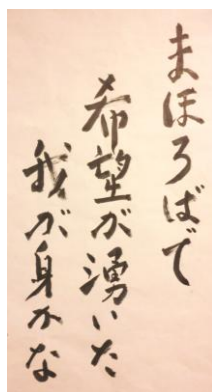 まほろばで
希望が湧いた
我が身かな